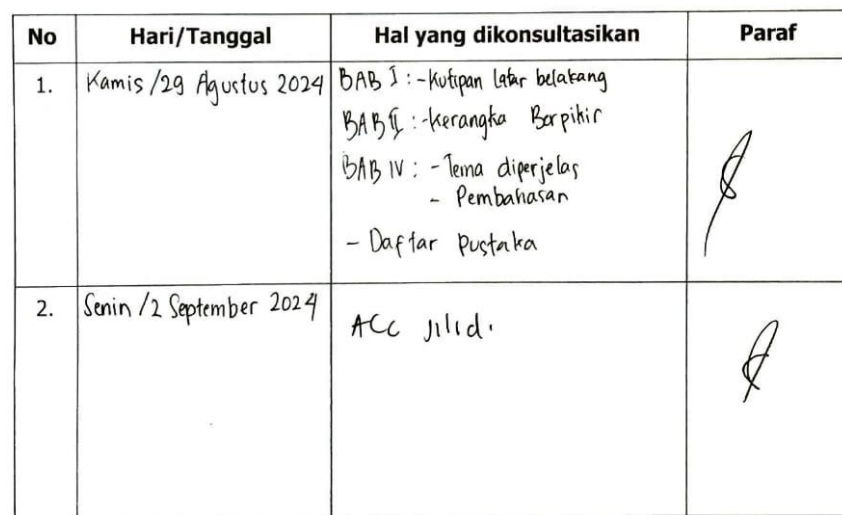 No Hari/Tanggal Hal yang dikonsultasikan Paraf
1. Kamis/29 Agustus 2024 BAB I : -Kutipan latar belakang
BAB II : -Kerangka Berpikir
BAB IV : - Tema diperjelas
- Pembahasan
- Daftar Pustaka
2. Senin/2 September 2024 ACC Jilid.